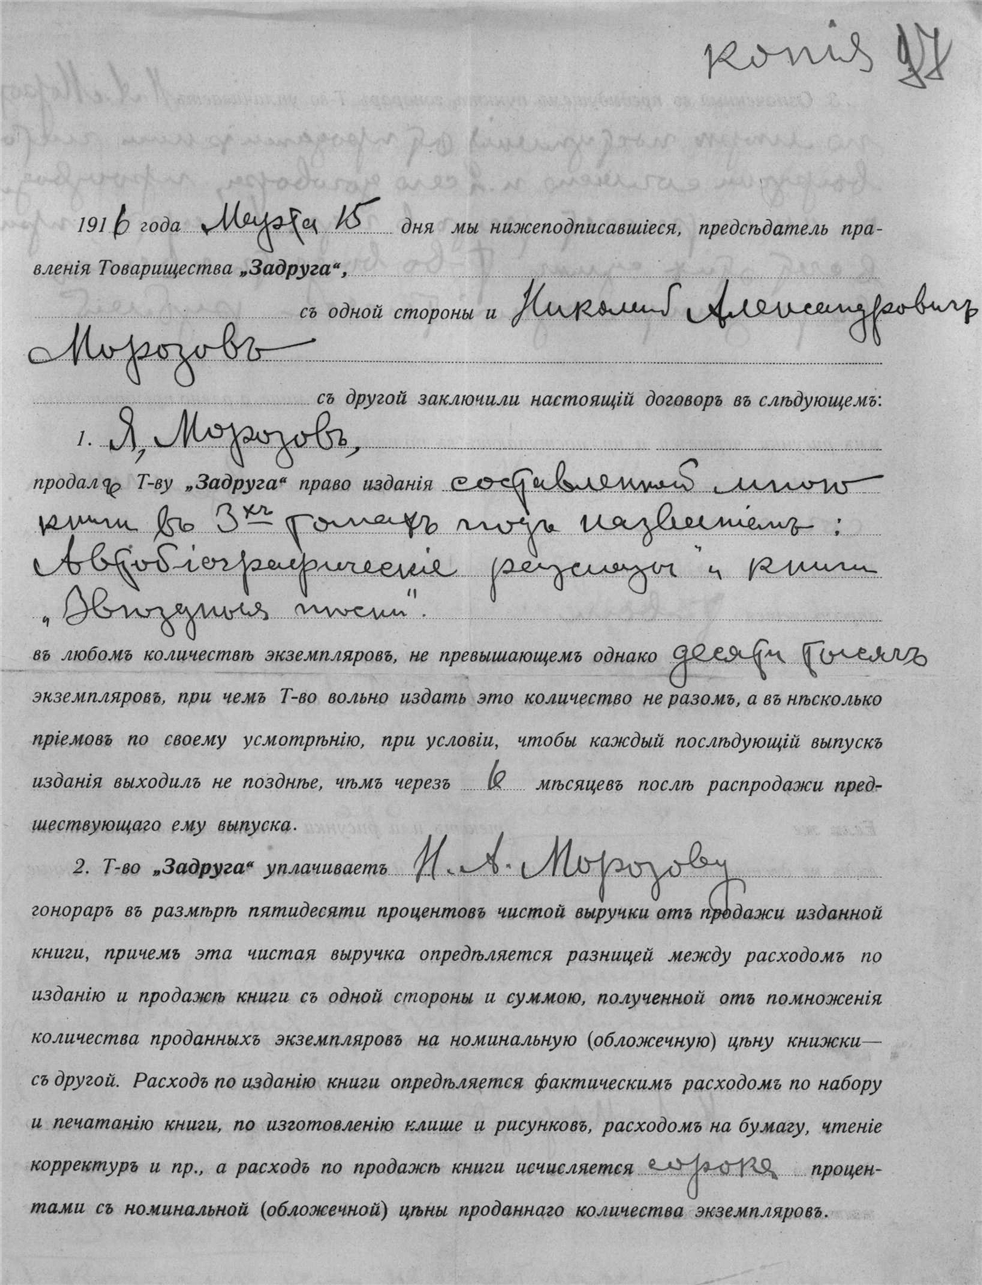 копія 97
1916 года Марта 15 дня мы нижеподписавшіеся, предсѣдатель пра-
вленія Товарищества „Задруга“,
съ одной стороны и Николай Александровичъ
Морозовъ
съ другой заключили настоящій договоръ въ слѣдующемъ:
1. Я, Морозовъ,
продалъ Т-ву „Задруга“ право изданія составленной мною
книги въ 3хъ томахъ подъ названіемъ:
Автобіографическіе разсказы" и книги
„Звѣздныя пѣсни".
въ любомъ количествѣ экземпляровъ, не превышающемъ однако десяти тысячъ
экземпляровъ, при чемъ Т-во вольно издать это количество не разомъ, а въ нѣсколько
пріемовъ по своему усмотрѣнію, при условіи, чтобы каждый послѣдующій выпускъ
изданія выходилъ не позднѣе, чѣмъ черезъ 6 мѣсяцевъ послѣ распродажи пред-
шествующаго ему выпуска.
2. Т-во „Задруга“ уплачиваетъ Н. А. Морозову
гонораръ въ размѣрѣ пятидесяти процентовъ чистой выручки отъ продажи изданной
книги, причемъ эта чистая выручка опредѣляется разницей между расходомъ по
изданію и продажѣ книги съ одной стороны и суммою, полученной отъ помноженія
количества проданныхъ экземпляровъ на номинальную (обложечную) цѣну книжки—
съ другой. Расходъ по изданію книги опредѣляется фактическимъ расходомъ по набору
и печатанію книги, по изготовленію клише и рисунковъ, расходомъ на бумагу, чтеніе
корректуръ и пр., а расходъ по продажѣ книги исчисляется сорока процен-
тами съ номинальной (обложечной) цѣны проданнаго количества экземпляровъ.